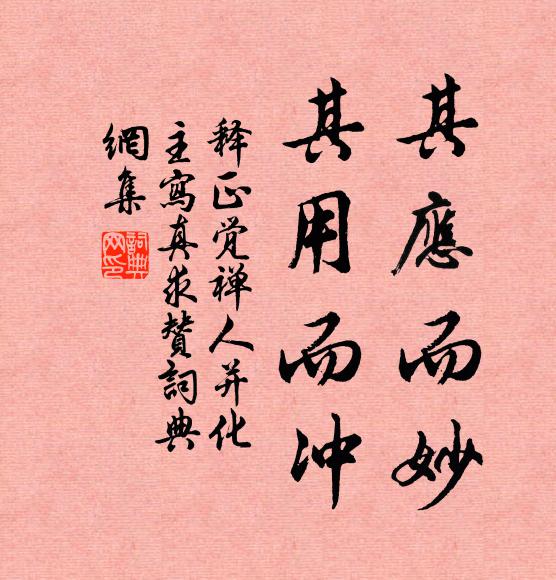 其應而妙
其用而冲
释正觉禅人并化
主寫真求贊詞典
網集
詞典網印